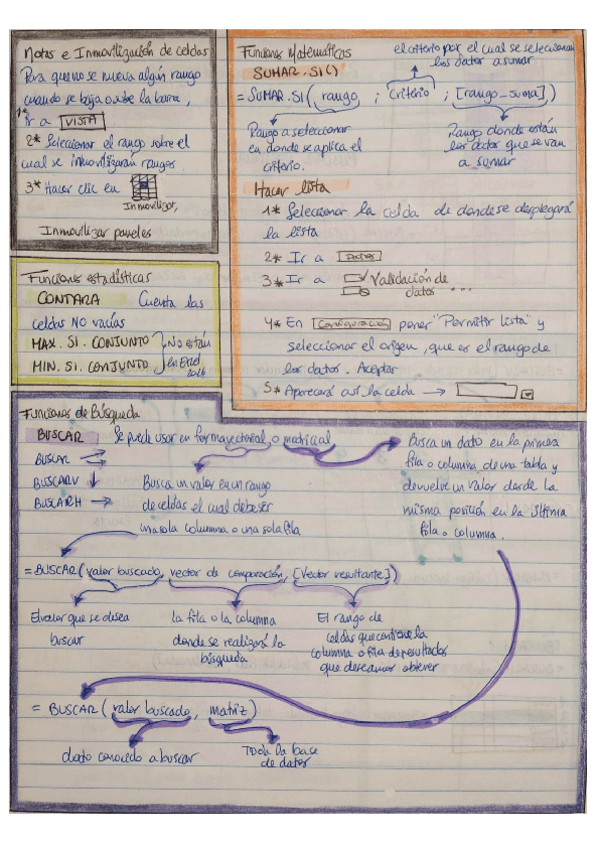 Notas e Inmovilización de celdas
Para que no se mueva algún rango
cuando se baja o sube la barra,
1* ir a VISTA
2* Seleccionar el rango sobre el
cual se inmovilizarán rangos.
3* Hacer clic en
Inmovilizar,
Inmovilizar paneles
Funciones Matemáticas
SUMAR.SI()
el criterio por el cual se seleccionan
los datos a sumar
=SUMAR.SI(rango ; criterio ; [rango_suma])
Rango a seleccionar
en donde se aplica el
criterio.
Rango donde están
los datos que se van
a sumar
Hacer lista
1* Seleccionar la celda de donde se desplegará
la lista
2* Ir a DATOS
3* Ir a Validación de
datos ...
4* En Configuración poner "Permitir lista" y
seleccionar el origen, que es el rango de
los datos. Aceptar
5* Aparecerá así la celda →
Funciones estadísticas
CONTARA Cuenta las
celdas NO vacías
MAX.SI.CONJUNTO
MIN.SI.CONJUNTO
No están
en Excel
2016
Funciones de Búsqueda
BUSCAR Se puede usar en forma vectorial o matricial
BUSCAR
BUSCARV ↓
BUSCARH →
Busca un valor en un rango
de celdas el cual debe ser
una sola columna o una sola fila
Busca un dato en la primera
fila o columna de una tabla y
devuelve un valor desde la
misma posición en la última
fila o columna.
=BUSCAR(valor buscado, vector de comparación, [vector resultante])
El valor que se desea
buscar
la fila o la columna
donde se realizará la
búsqueda
El rango de
celdas que contiene la
columna o fila de resultados
que deseamos obtener
= BUSCAR (valor buscado, matriz)
dato conocido a buscar
Toda la base
de datos